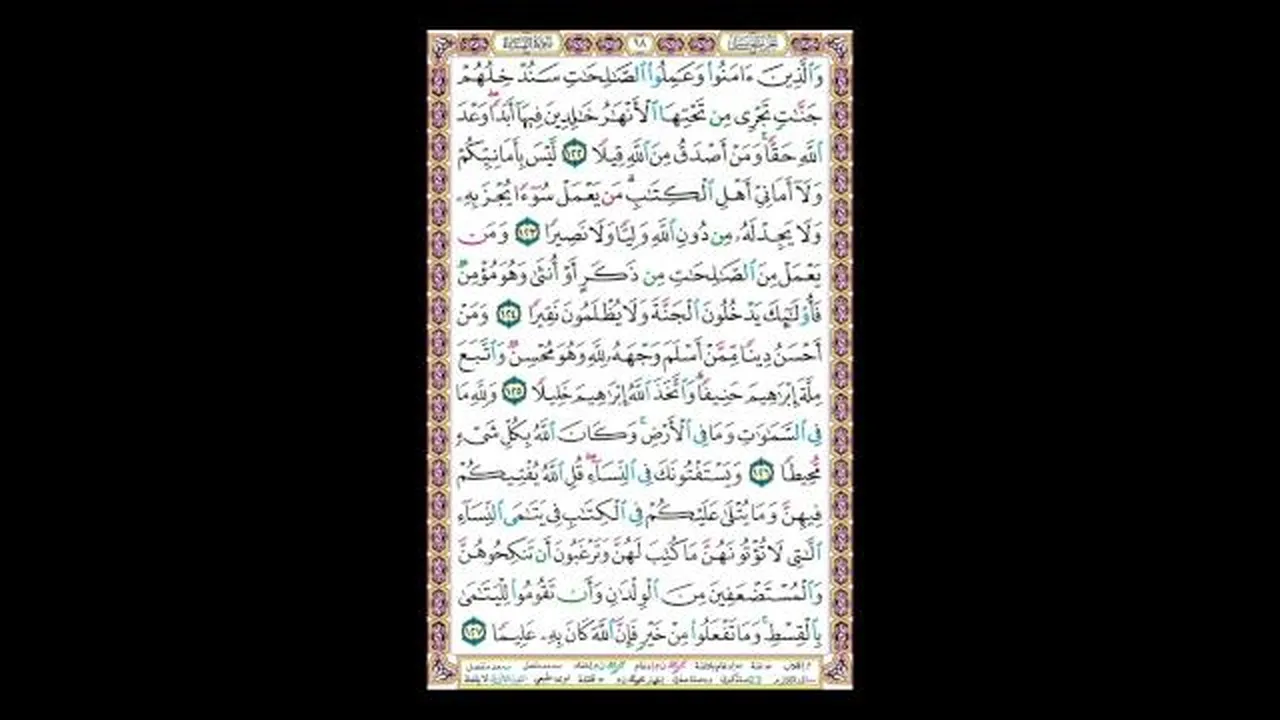 سورة النساء ٩٨ الجزء الخامس
وَٱلَّذِينَ ءَامَنُوا۟ وَعَمِلُوا۟ ٱلصَّـٰلِحَـٰتِ سَنُدْخِلُهُمْ
جَنَّـٰتٍ تَجْرِى مِن تَحْتِهَا ٱلْأَنْهَـٰرُ خَـٰلِدِينَ فِيهَآ أَبَدًا ۖ وَعْدَ
ٱللَّهِ حَقًّا ۚ وَمَنْ أَصْدَقُ مِنَ ٱللَّهِ قِيلًا ١٢٢ لَّيْسَ بِأَمَانِيِّكُمْ
وَلَآ أَمَانِىِّ أَهْلِ ٱلْكِتَـٰبِ ۗ مَن يَعْمَلْ سُوٓءًا يُجْزَ بِهِۦ
وَلَا يَجِدْ لَهُۥ مِن دُونِ ٱللَّهِ وَلِيًّا وَلَا نَصِيرًا ١٢٣ وَمَن
يَعْمَلْ مِنَ ٱلصَّـٰلِحَـٰتِ مِن ذَكَرٍ أَوْ أُنثَىٰ وَهُوَ مُؤْمِنٌ
فَأُو۟لَـٰٓئِكَ يَدْخُلُونَ ٱلْجَنَّةَ وَلَا يُظْلَمُونَ نَقِيرًا ١٢٤ وَمَنْ
أَحْسَنُ دِينًا مِّمَّنْ أَسْلَمَ وَجْهَهُۥ لِلَّهِ وَهُوَ مُحْسِنٌ وَٱتَّبَعَ
مِلَّةَ إِبْرَٰهِيمَ حَنِيفًا ۗ وَٱتَّخَذَ ٱللَّهُ إِبْرَٰهِيمَ خَلِيلًا ١٢٥ وَلِلَّهِ مَا
فِى ٱلسَّمَـٰوَٰتِ وَمَا فِى ٱلْأَرْضِ ۚ وَكَانَ ٱللَّهُ بِكُلِّ شَىْءٍ
مُّحِيطًا ١٢٦ وَيَسْتَفْتُونَكَ فِى ٱلنِّسَآءِ ۖ قُلِ ٱللَّهُ يُفْتِيكُمْ
فِيهِنَّ وَمَا يُتْلَىٰ عَلَيْكُمْ فِى ٱلْكِتَـٰبِ فِى يَتَـٰمَى ٱلنِّسَآءِ
ٱلَّـٰتِى لَا تُؤْتُونَهُنَّ مَا كُتِبَ لَهُنَّ وَتَرْغَبُونَ أَن تَنكِحُوهُنَّ
وَٱلْمُسْتَضْعَفِينَ مِنَ ٱلْوِلْدَٰنِ وَأَن تَقُومُوا۟ لِلْيَتَـٰمَىٰ
بِٱلْقِسْطِ ۚ وَمَا تَفْعَلُوا۟ مِنْ خَيْرٍ فَإِنَّ ٱللَّهَ كَانَ بِهِۦ عَلِيمًا ١٢٧